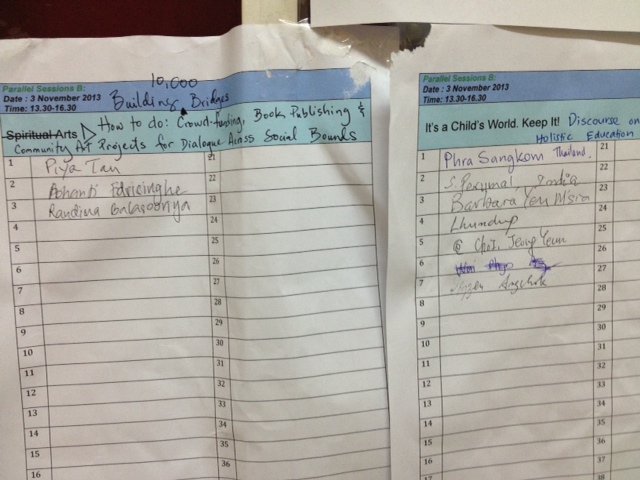 Parallel Sessions B:
Date : 3 November 2013
Time: 13.30-16.30
10,000
Building Bridges
Spiritual Arts How to do: Crowd-funding, Book Publishing &
Community Art Projects for Dialogue Across Social Bounds
1 Piya Tan 21
2 22
3 Randima 23
4 24
5 25
6 26
7 27
8 28
9 29
10 30
11 31
12 32
13 33
14 34
15 35
16 36
Parallel Sessions B:
Date : 3 November 2013
Time: 13.30-16.30
It's a Child's World. Keep It! Discourse on
Holistic Education
1 Phra Sangkom Thailand. 21
2 S. Perumal India 22
3 Barbara Yen 23
4 Lhundup 24
5 Choi, Jeong Yeun 25
6 26
7 Angchok 27
8 28
9 29
10 30
11 31
12 32
13 33
14 34
15 35
16 36
17 37
18 38